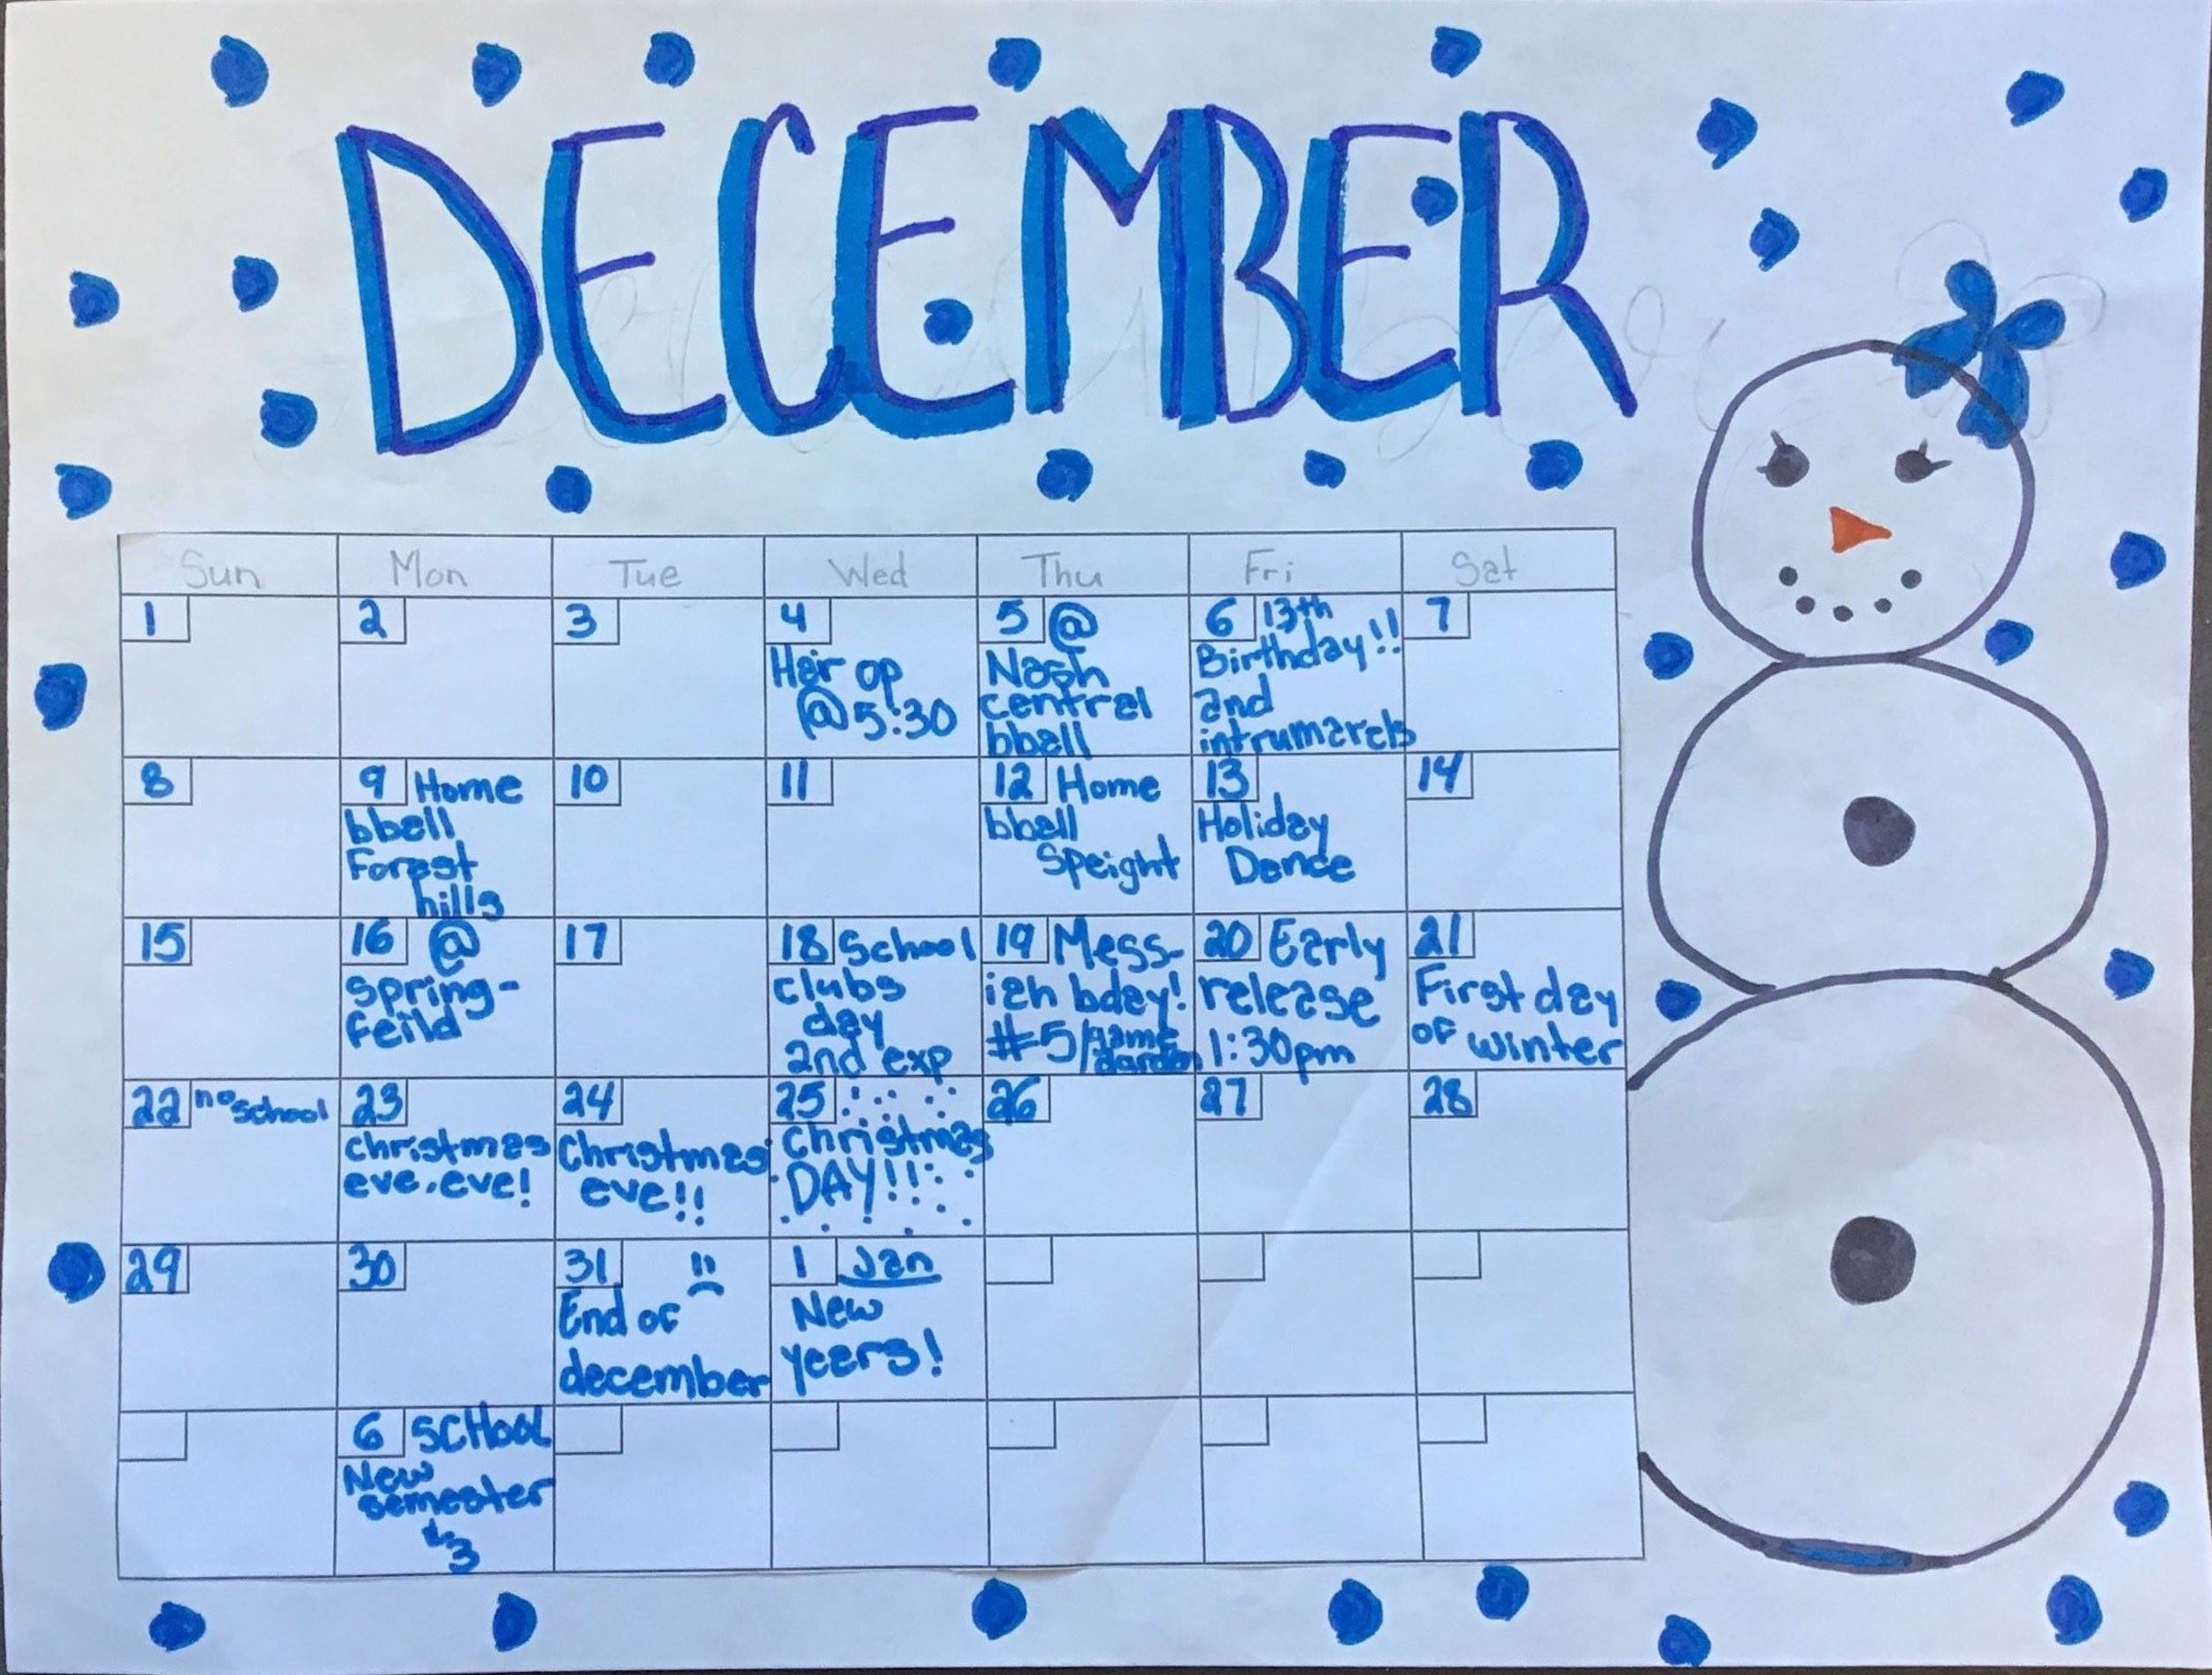 DECEMBER
Sun Mon Tue Wed Thu Fri Sat
1
2
3
4
Hair op
@5:30
5 @
Nash
central
bball
6 13th
Birthday!!
and
intrumarels
7
8
9 Home
bball
Forest
hills
10
11
12 Home
bball
Speight
13
Holiday
Dance
14
15
16 @
Spring-
feild
17
18 School
clubs
day
2nd exp
19 Mess-
iah bday!
#5/game
darden
20 Early
release
1:30pm
21
First day
of winter
22 no school
23
christmas
eve.eve!
24
Christmas
eve!!
25
Christmas
DAY!!!
26
27
28
29
30
31
End of
december
1 Jan
New
years!
6 SCHOOL
New
semester
3